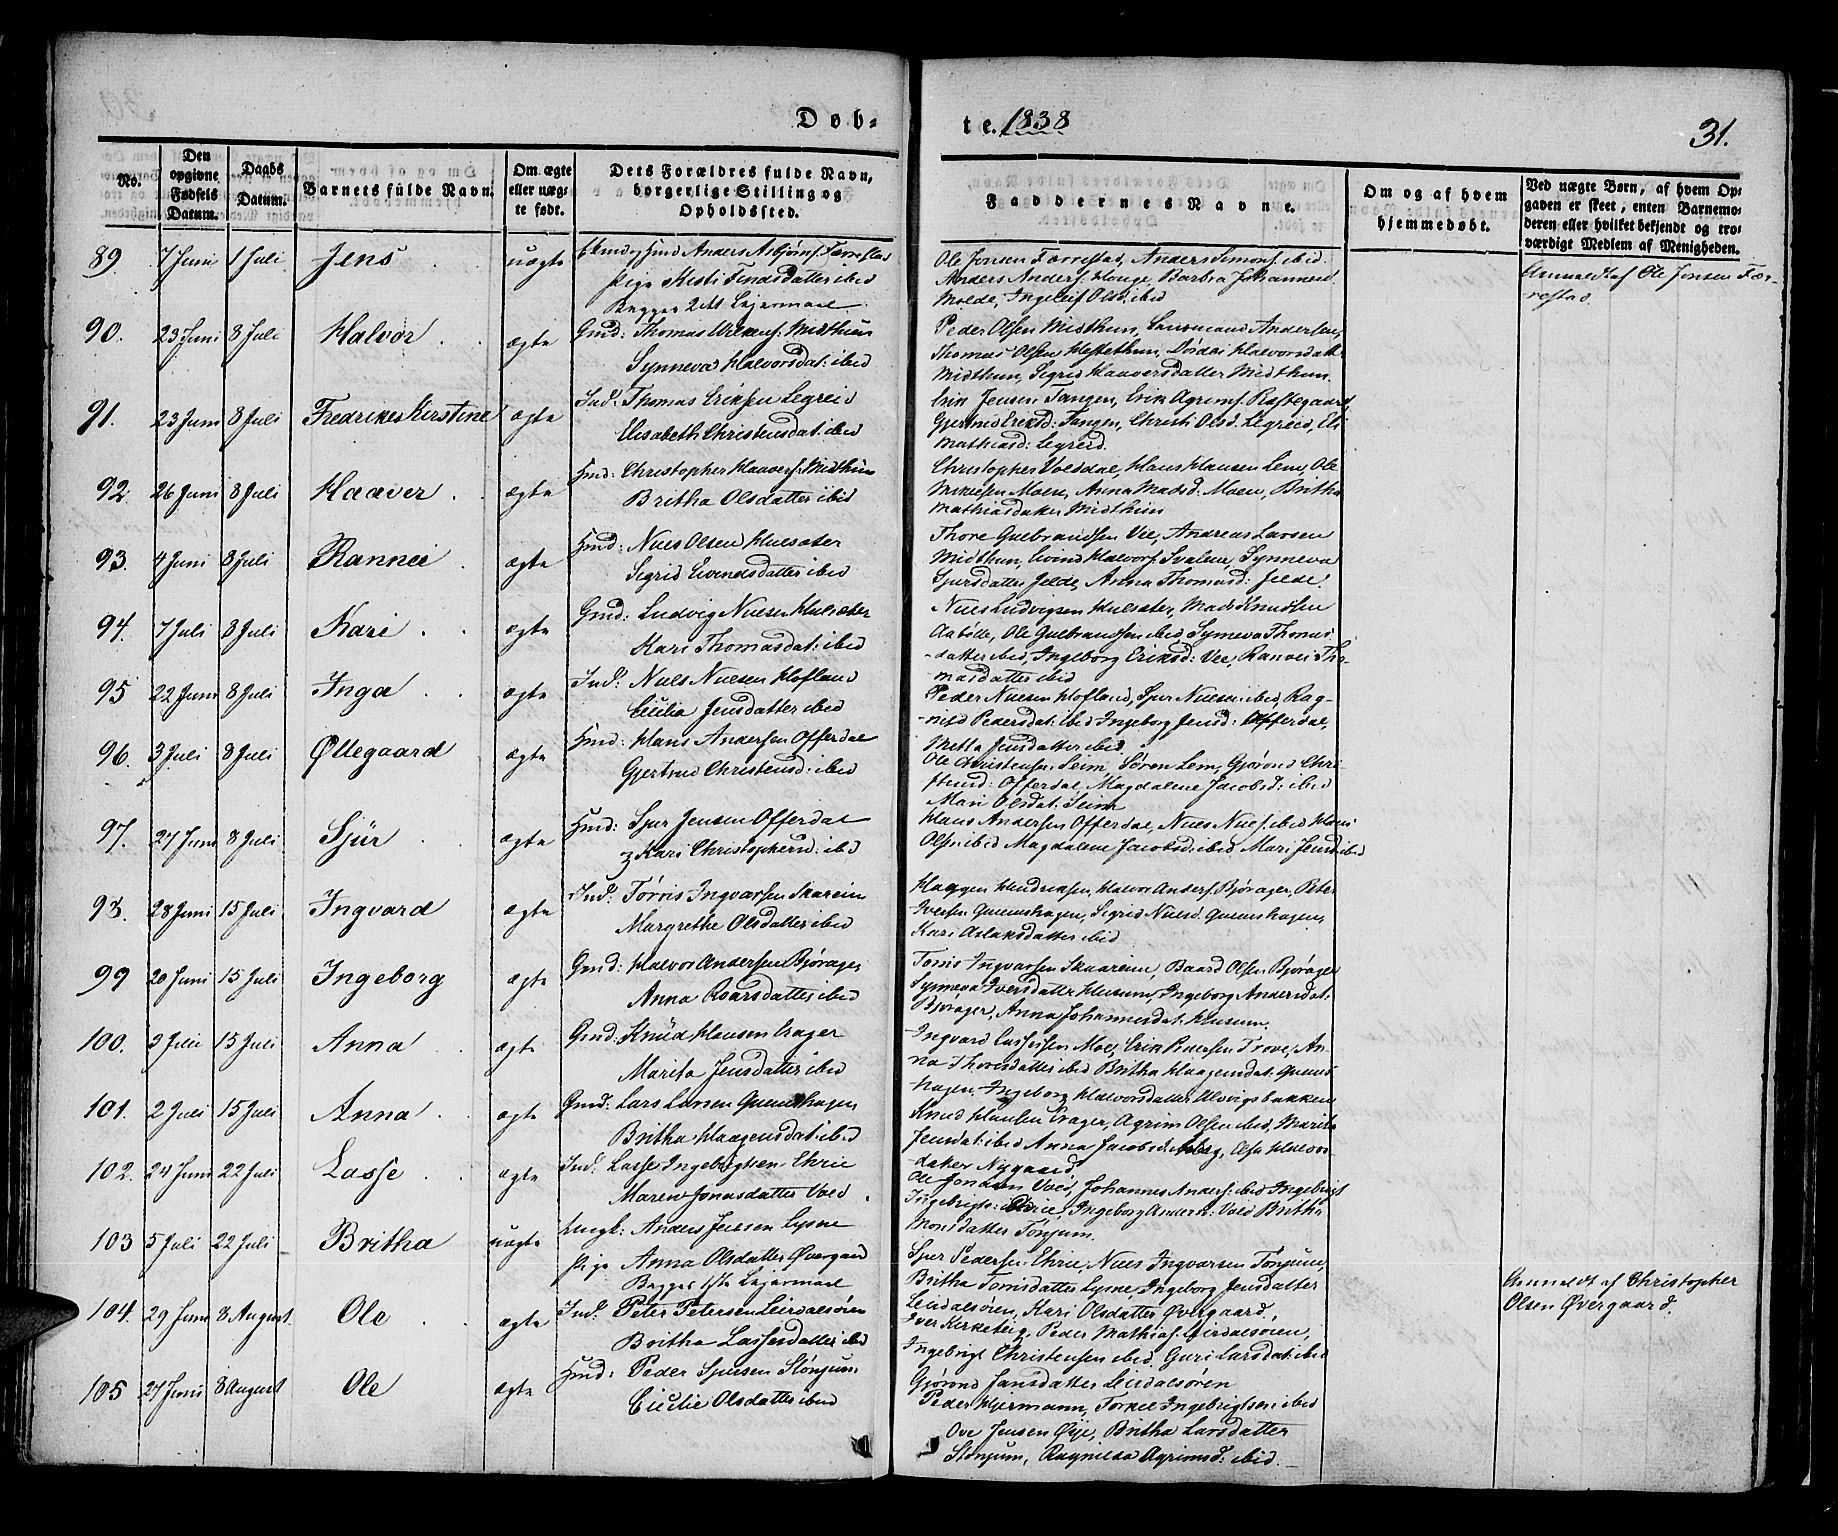 Døb-
te. 1838
31.
No.
Den opgivne Fødsels Datum.
Daabs Datum.
Barnets fulde Navn.
Om ægte eller uægte født.
Dets Forældres fulde Navn, borgerlige Stilling og Opholdssted.
Faddernes Navne.
Om og af hvem hjemmedøbt.
Ved uægte Børn, af hvem Opgaven er skeet, enten Barnemoderen eller hvilket bekjendt og troværdigt Medlem af Menigheden.
89. 7 Juni 1 Juli Jens uægte
Anders Asbjørns: Færrestad
Pige Kisti Findsdatter ibid
Begges 2det Lejermaal
Ole Jonsen Færrestad, Anders Simons: ibid
Anders Anders: Hauge, Barbra Johannesd
Molde, Ingeleif Olsd: ibid
Anmeldt af Ole Jonsen Fær-
restad.
90. 23 Juni 8 Juli Halvor ægte
Gmd: Thomas Midthun
Synneva Halvorsdat: ibid
Peder Olsen Midthun, Andersen,
Thomas Olsen Hestethun, Dordei Halvorsdatt
Midthun, Sigrid Haaversdatter Midthun.
91. 23 Juni 8 Juli Fredrike Kirstine ægte
Ind: Thomas Eriksen Legreid
Elisabeth Christensdat: ibid
Erik Jensen Tangen, Erik Agrims: Raftegaard
Gjertrud Eriksd: Tangen, Christi Olsd: Legreid, Eli
Mathiasd: Legreid.
92. 26 Juni 8 Juli Haaver ægte
Hmd: Christopher Haavers: Midthun
Britha Olsdatter ibid
Christopher Voldsdal, Hans Hansen Lem, Ole
Moen, Anna Madsd: Moen, Britha
Mathiasdatter Midthun
93. 4 Juni 8 Juli Rannei ægte
Hmd: Niels Olsen Hulsæter
Sigrid Eivindsdatter ibid
Thore Guelbrandsen Vee, Andreas Larsen
Midthun, Eivind Halvors: Svalem, Synneva
Sjursdatter Jelde, Anna Thomasd: Jelde.
94. 7 Juli 8 Juli Kari ægte
Gmd: Ludvig Nielsen Hulsæter
Kari Thomasdat: ibid
Niels Ludvigsen Hulsæter, Mads Knudsen
Aabølle, Ole Gulbrandsen ibid Synneva Thomas
-datter ibid, Ingeborg Eriksd: Vee, Ranvei Tho-
masdatter ibid
95 22 Juni 8 Juli Inga ægte
Ind: Niels Nielsen Hofland
Cicilia Jensdatter ibid
Peder Nielsen Hofland, Sjur Nielsen ibid, Rag-
-nild Pedersdat: ibid Ingeborg Jensd: Offerdal,
Metta Jensdatter ibid.
96. 3 Juli 8 Juli Øllegaard ægte
Hmd: Hans Andersen Offerdal
Gjertrud Christensd: ibid
Ole Christensen Seim, Søren Lem, Gjørond Chri-
stensd: Offerdal, Magdalene Jacobsd: ibid
Mari Olsdat: Seim
97. 27 Juni 8 Juli Sjur ægte
Hmd: Sjur Jensen Offerdal
Kari Christophersd: ibid
Hans Andersen Offerdal, Niels Niels: ibid Hans
Olsen ibid Magdalene Jacobsd: ibid Mari Jensd: ibid
98. 28 Juni 15 Juli Ingvard ægte
Ind: Tørris Ingvarsen Skareim
Margrethe Olsdatter ibid
Haagen Hendriksen, Halvor Anders: Bjørager, Peter
Iversen Qvamshagen, Sigrid Nielsd. Qvamshagen,
Kari Aslaksdatter ibid
99 20 Juni 15 Juli Ingeborg ægte
Gmd: Halvor Andersen Bjørager
Anna Roarsdatter ibid
Tørris Ingvarsen Skaareim, Baard Olsen Bjørager
Synneva Iversdatter Husum, Ingeborg Andersdat:
Bjørager, Anna Johannesdat: Husum.
100. 3 Juli 15 Juli Anna ægte
Gmd: Knud Hansen Erager
Marita Jensdatter ibid
Ingvard Lassesen Moe, Erik Pedersen Trove, An-
na Thoresdatter ibid Britha Haagensdat: Qvams
hagen, Ingeborg Halvorsdatter Ulvigsbakken
101. 2 Juli 15 Juli Anna ægte
Gmd: Lars Larsen Qvamshagen
Britha Haagensdat: ibid
Knud Hansen Erager, Agrim Olsen ibid, Marita
Jensdat: ibid Anna Jacobsd: , Halvor-
datter Nygaard.
102. 24 Juni 22 Juli Lasse ægte
Ind: Lasse Ingebrigtsen Ehrie
Maren Jonasdatter Vold
Ole Jonasen Vold, Johannes Anders: ibid Ingebrigt
Ingebrigts: Ehrie, Ingeborg Andersd: Vold Britha
Monsdatter Tønjum.
103 5 Juli 22 Juli Britha uægte
Ungk: Anders Jensen Lysne
Pige Anna Olsdatter Øvergaard
Begges 1ste Lejermaal
Sjur Pedersen Ehrie, Niels Ingvarsen Tønjum,
Britha Tørrisdatter Lysne, Ingeborg Jensdatter
Leirdalsøren, Kari Olsdatter Øvergaard,
Anmeldt af Christopher
Olsen Øvergaard.
104. 29 Juni 8 August Ole ægte
Ind: Peter Petersen Leirdalsøren
Britha Lassesdatter ibid
Iver Kirketeig, Peder Mathias: Leirdalsøren,
Ingebrigt Christensen ibid. Guri Larsdat: ibid
Gjørond Jansdatter Leirdalsøren
105 27 Juni 8 August Ole ægte
Hmd: Peder Sjursen Stønjum
Cicilie Olsdatter ibid
Peder Hjermann, Torkel Ingebrigtsen ibid
Ove Jensen Øije, Britha Larsdatter
Stønjum, Ragnilda Agrimsd: ibid.